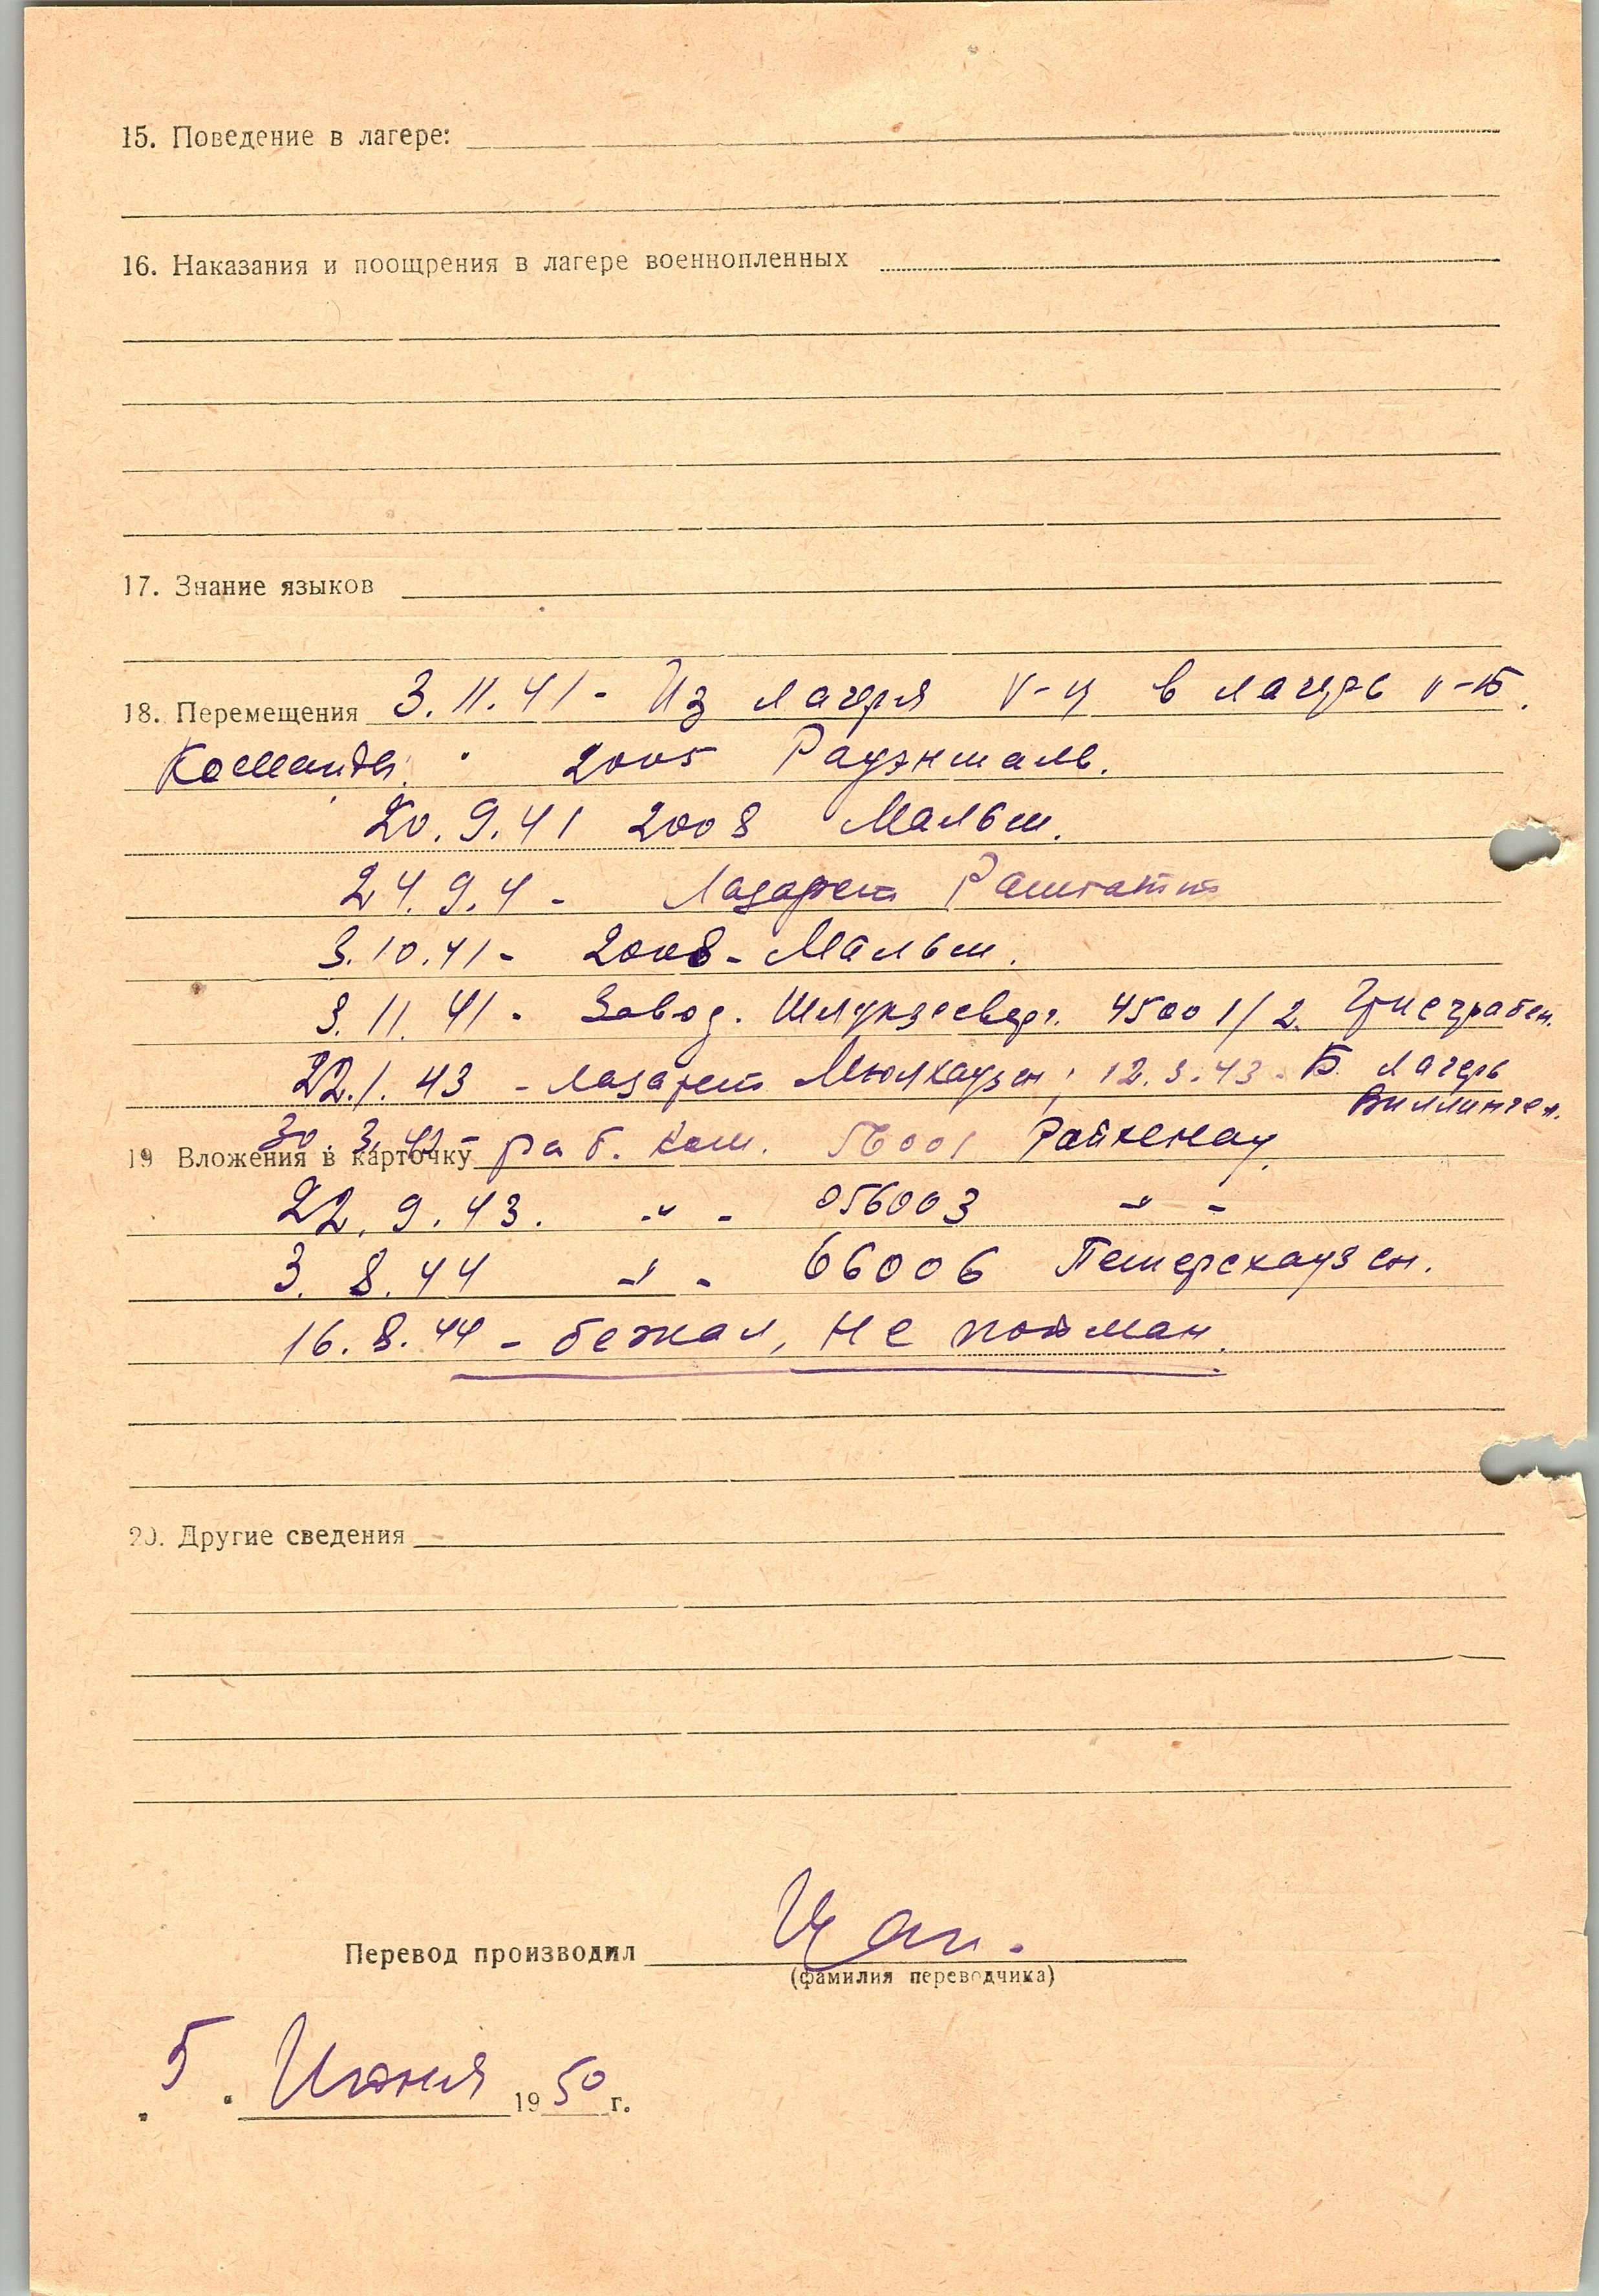 15. Поведение в лагере:
16. Наказания и поощрения в лагере военнопленных
17. Знание языков
18. Перемещения 3.11.41 - Из лагеря V-Ц в лагерь V-Б.
Команды: 2005 Рауэншаль.
20.9.41 2008 Мальш.
24.9.4 - Лазарет Раштатт
3.10.41 - 2008 - Мальш.
3.11.41 - Завод. 45001/2.
22.1.43 - лазарет Мюлхаузен, 12.3.43 - Б. лагерь
Виллинген.
30.3.43 раб. ком. 56001 Райхенау.
19 Вложения в карточку
22.9.43. -"- 056003 -"-
3.8.44 -"- 66006 Петерсхаузен.
16.8.44 - бежал, не пойман.
20. Другие сведения
Перевод производил Цап.
(фамилия переводчика)
5 Июня 1950 г.